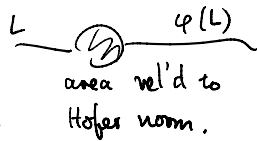 L φ(L)
area rel'd to
Hofer norm.